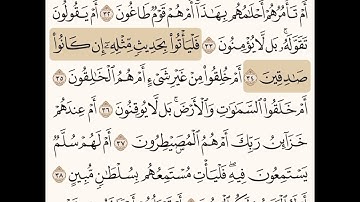 أَمْ تَأْمُرُهُمْ أَحْلَامُهُم بِهَٰذَا ۚ أَمْ هُمْ قَوْمٌ طَاغُونَ ٣٢ أَمْ يَقُولُونَ
تَقَوَّلَهُ ۚ بَل لَّا يُؤْمِنُونَ ٣٣ فَلْيَأْتُوا۟ بِحَدِيثٍ مِّثْلِهِ إِن كَانُوا۟
صَٰدِقِينَ ٣٤ أَمْ خُلِقُوا۟ مِنْ غَيْرِ شَىْءٍ أَمْ هُمُ ٱلْخَٰلِقُونَ ٣٥
أَمْ خَلَقُوا۟ ٱلسَّمَٰوَٰتِ وَٱلْأَرْضَ ۚ بَل لَّا يُوقِنُونَ ٣٦ أَمْ عِندَهُمْ
خَزَآئِنُ رَبِّكَ أَمْ هُمُ ٱلْمُصَۣيْطِرُونَ ٣٧ أَمْ لَهُمْ سُلَّمٌ
يَسْتَمِعُونَ فِيهِ ۖ فَلْيَأْتِ مُسْتَمِعُهُم بِسُلْطَٰنٍ مُّبِينٍ ٣٨